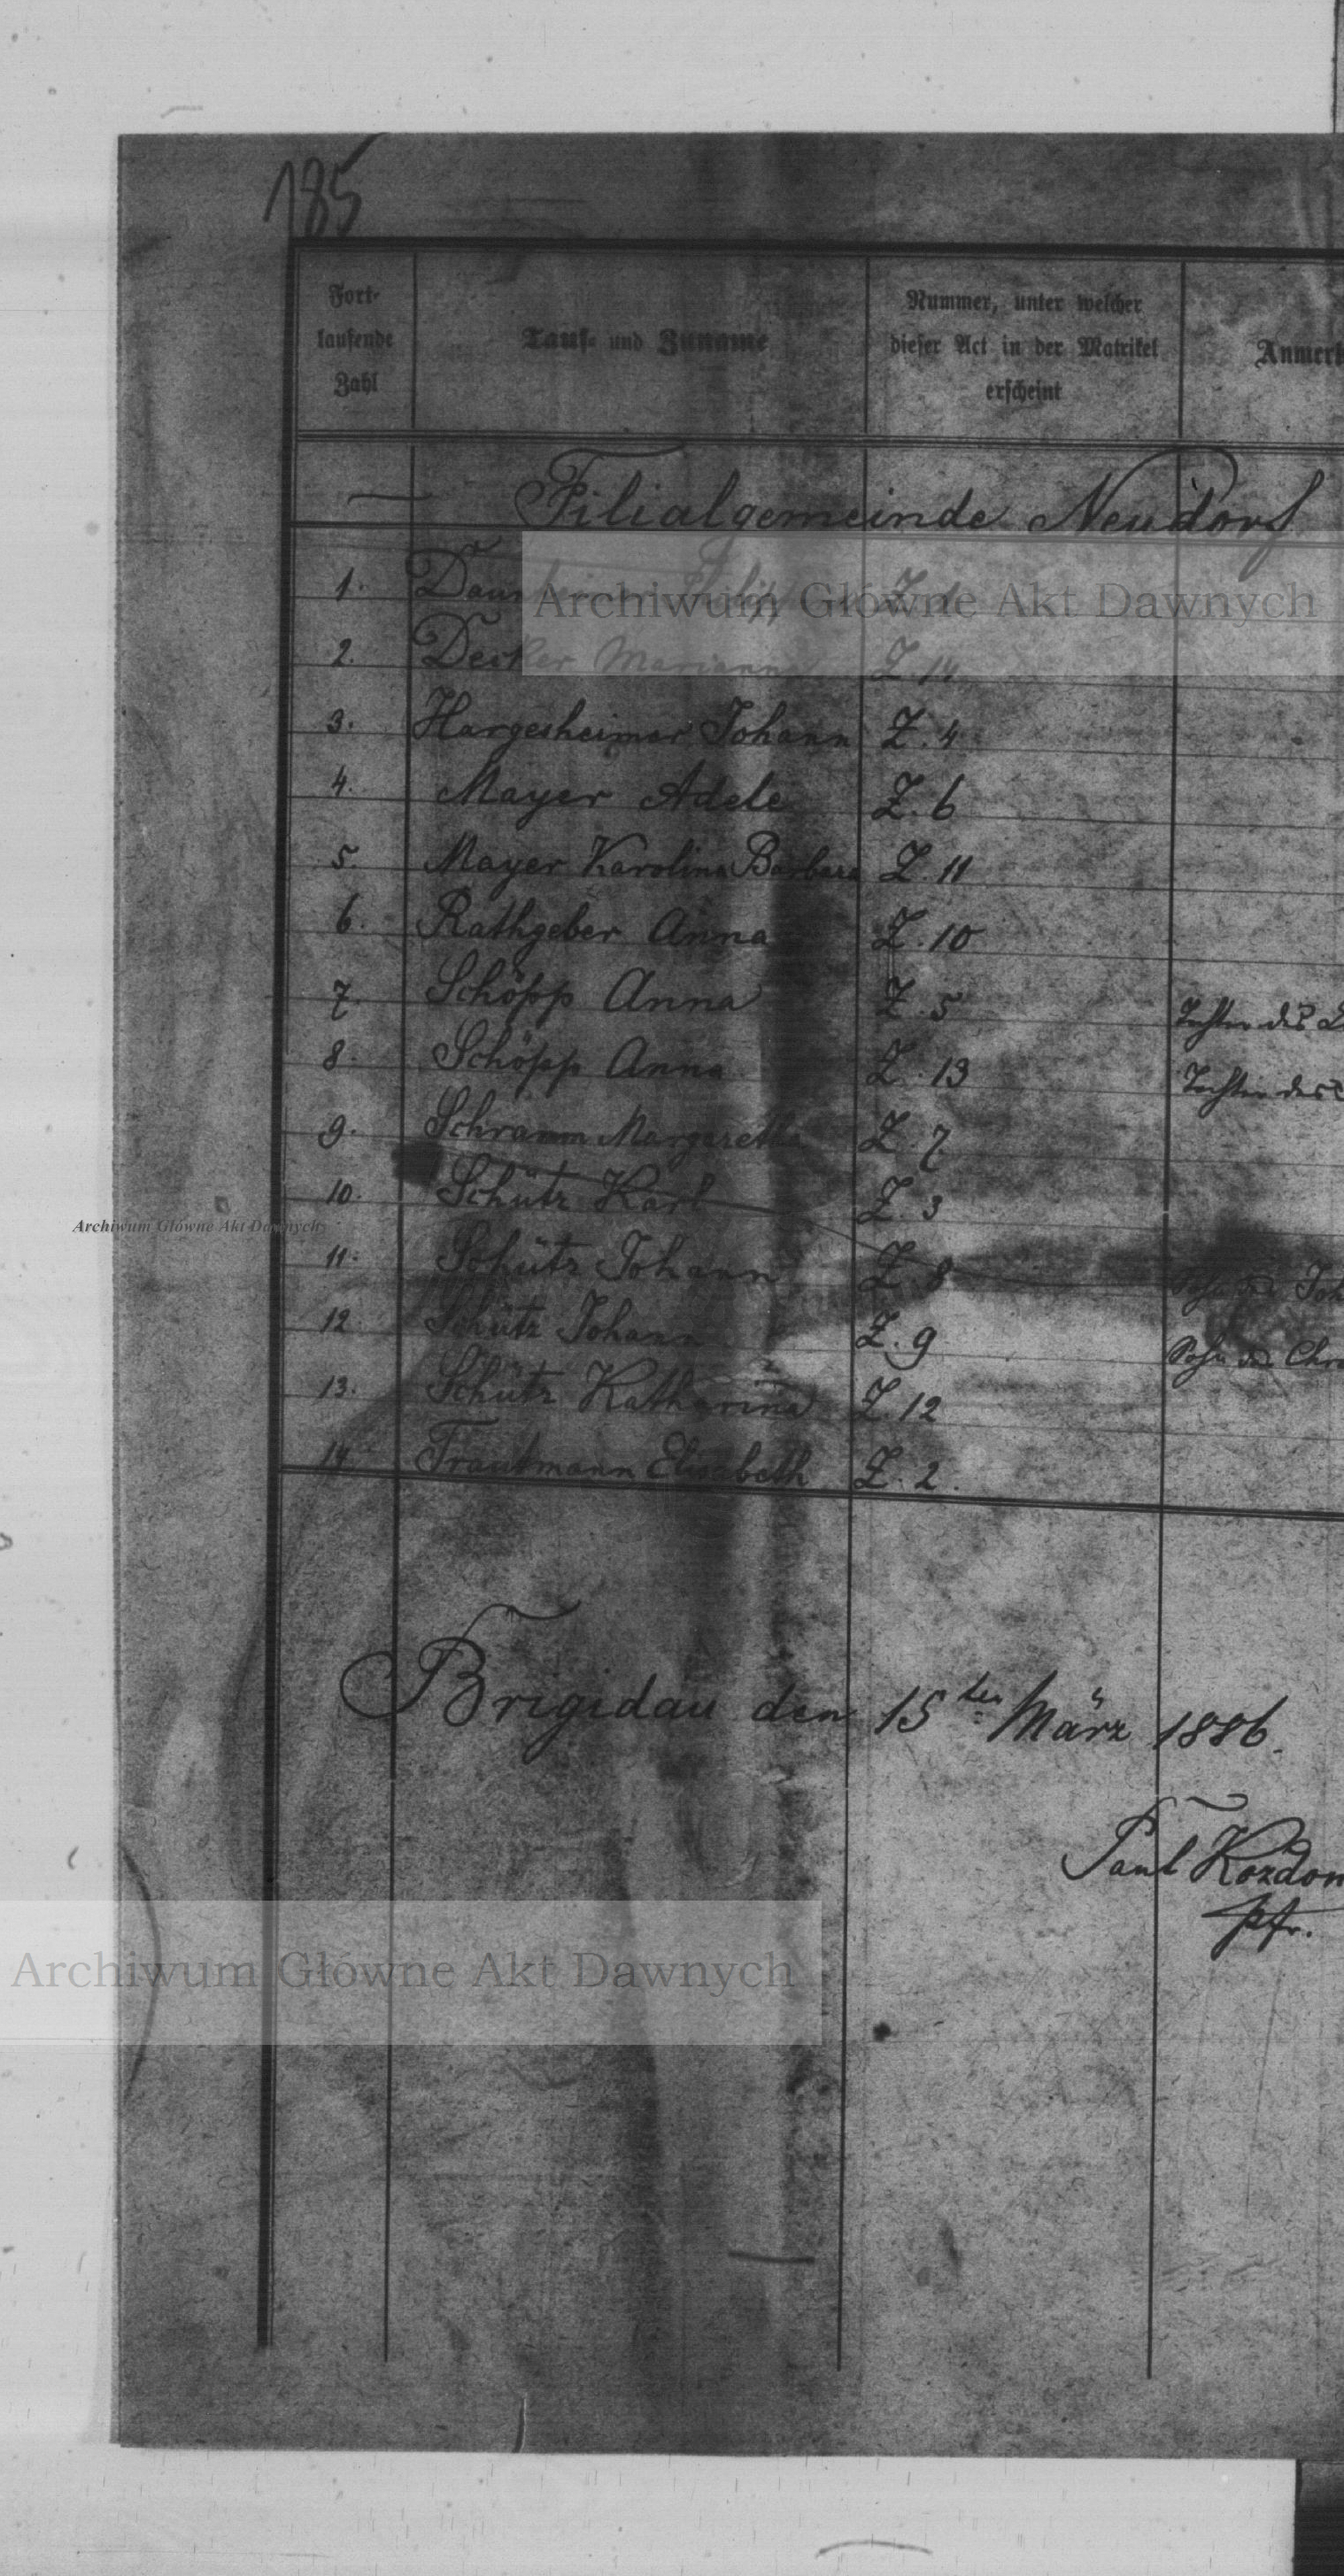 185
Fort-
laufende
Zahl
Tauf- und Zuname
Nummer, unter welcher
dieser Act in der Matrikel
erscheint
Filialgemeinde Neudorf
1. Z. 1
Archiwum Główne Akt Dawnych
2. Decker Marianna Z. 14
3. Hargesheimer Johann Z. 4
4. Mayer Adele Z. 6
5. Mayer Karolina Barbara Z. 11
6. Rathgeber Anna Z. 10
7. Schöpp Anna Z. 5 Tochter des
8. Schöpp Anna Z. 13 Tochter des
9. Schramm Margaretha Z. 7
10. Schütz Karl Z. 3
Archiwum Główne Akt Dawnych
11. Schütz Johann Z. 8 Sohn des
12. Schütz Johann Z. 9 Sohn des
13. Schütz Katharina Z. 12
14. Trautmann Elisabeth Z. 2.
Brigidau den 15ten März 1886.
Paul Kozdon
pfr.
Archiwum Główne Akt Dawnych